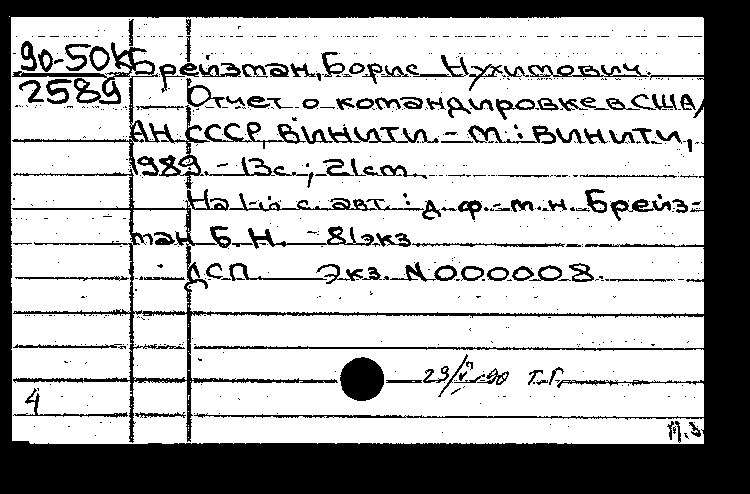 90-50К
2589
Брейзман, Борис Нухимович.
Отчет о командировке в США/
АН СССР, ВИНИТИ. - М.: ВИНИТИ,
1989. - 13с.; 21см.
На 1-й с. авт.: д. ф.-м. н. Брейз-
ман Б. Н. - 81экз.
ДСП. Экз. N 000008.
90 Т.Г.
4